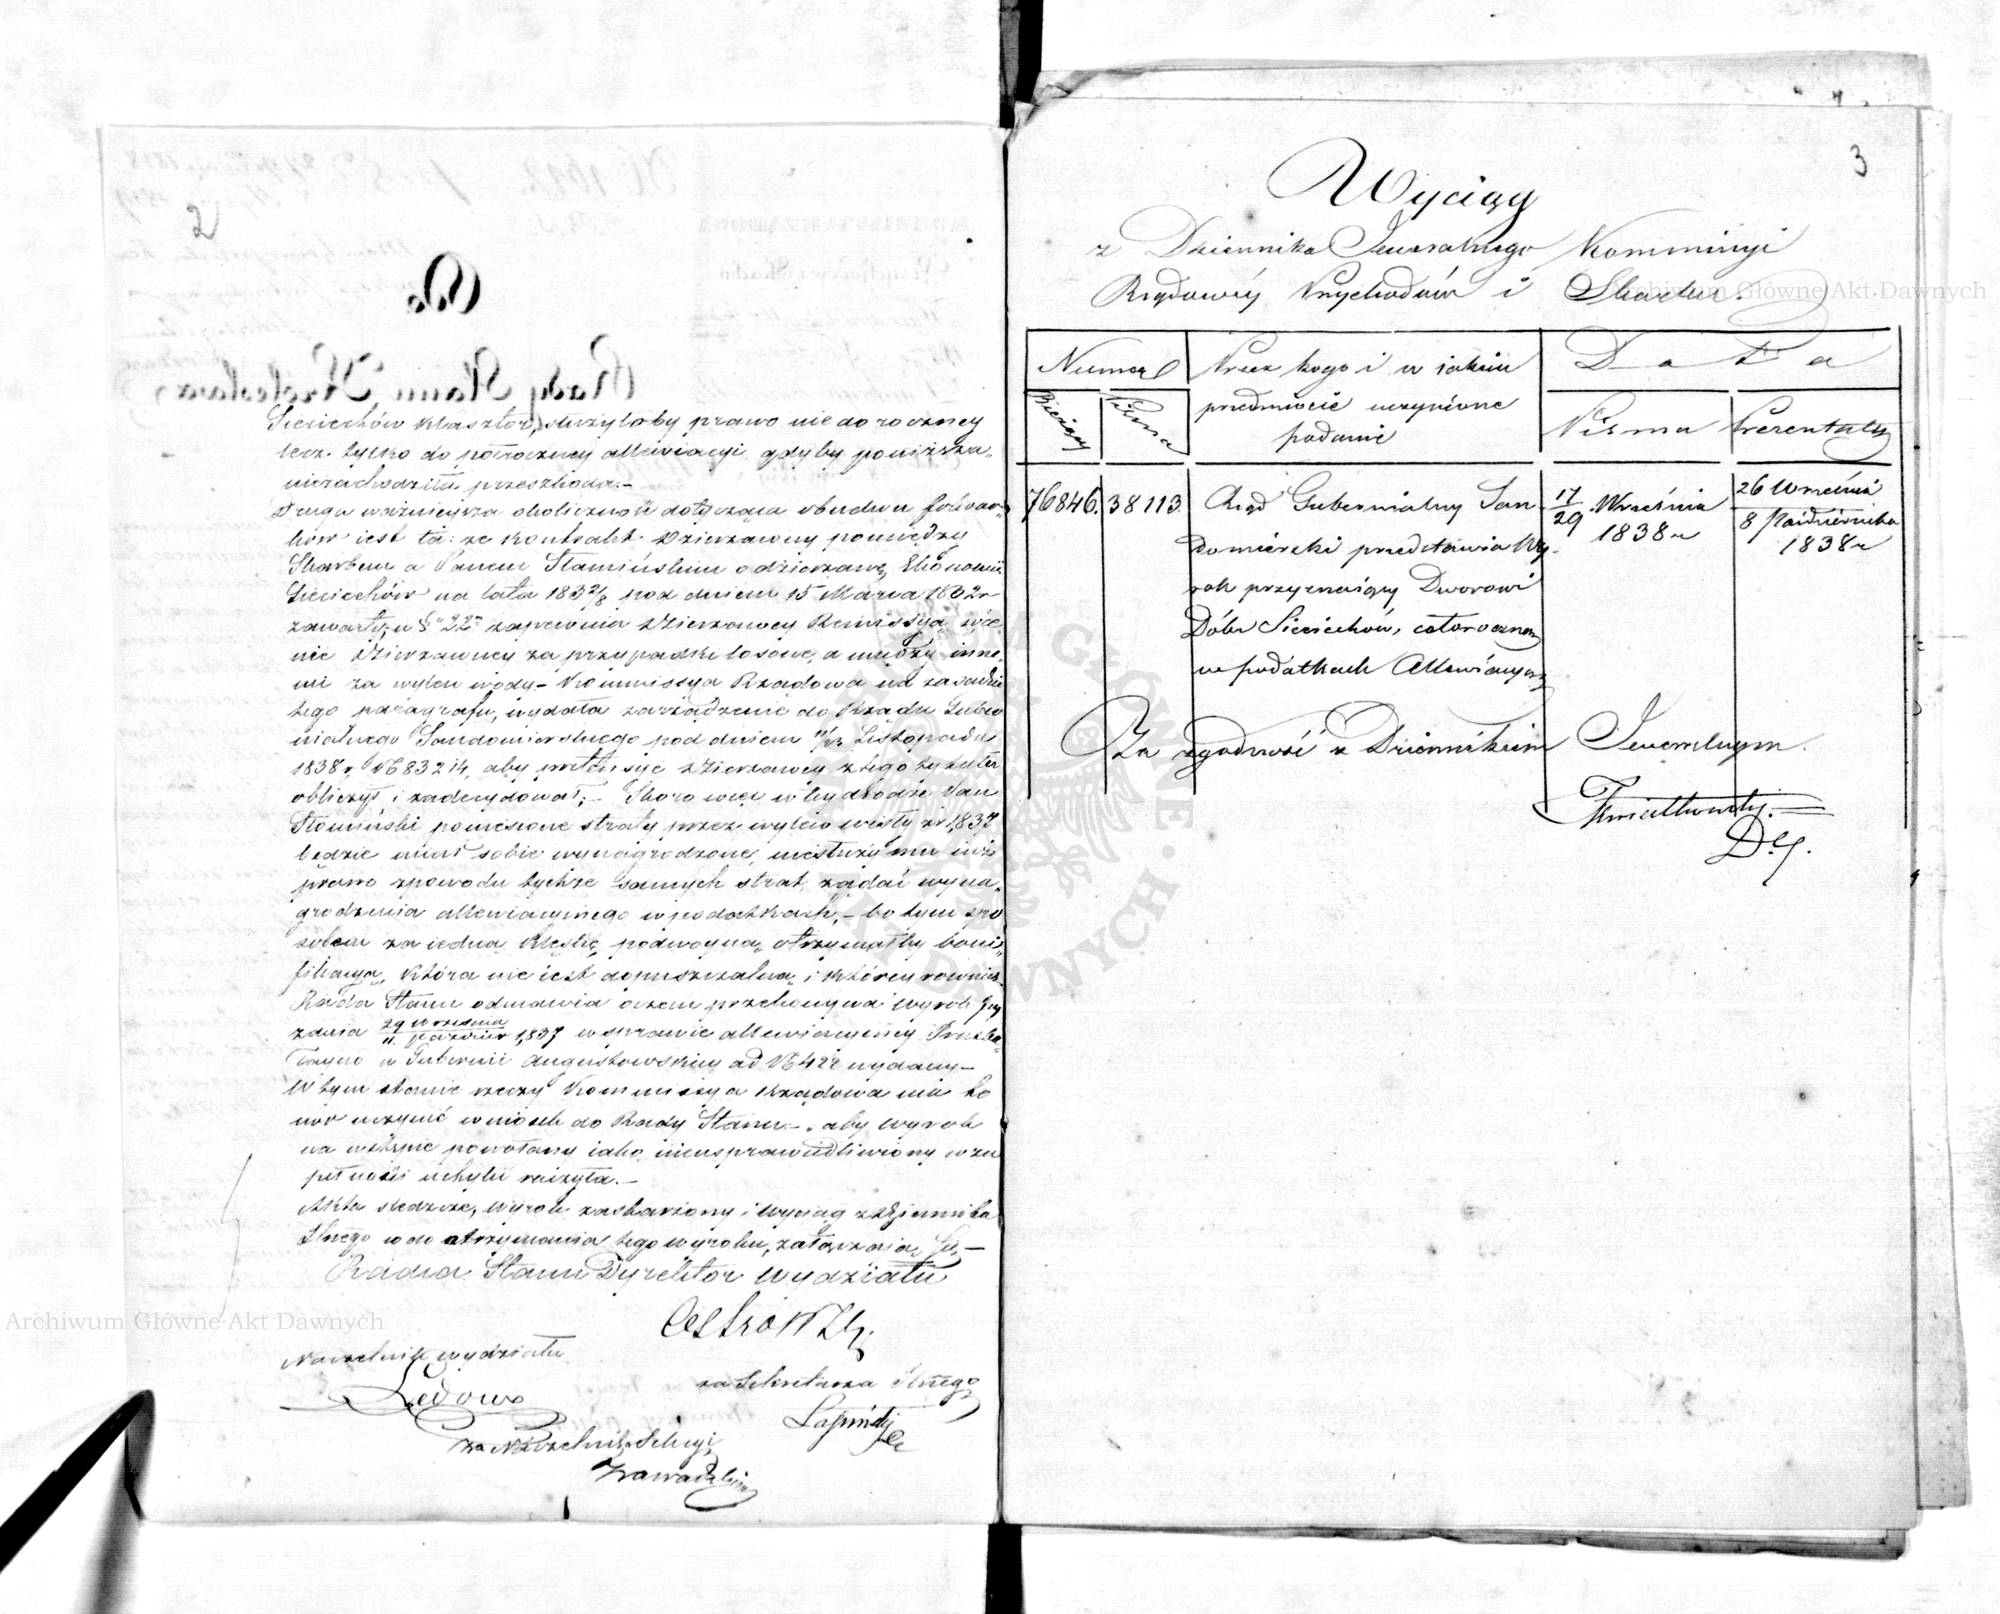 2
Sieciechów Klasztor, służyłoby prawo nie do roczney
lecz tylko do połroczney allewiacyi, gdyby poniższa
niezachodziła przeszkoda.—
Druga ważnieysza okoliczność dotycząca obudwu folwar„
ków iest ta: że Kontrakt Dzierzawny pomiędzy
Skarbem a Panem Słamińskim o dzierzawę Ekonomii
Sieciechów na lata 183 2/8 pod dniem 15 Marca 1832 r
zawarty, w § 22m zapewnia Dzierzawcy Remissyą
nie Dzierzawcy za przypadki losowe, a między inne„
mi za wylew wody — Kommissya Rządowa na zasadzie
tego paragrafu, wydała zarządzenie do Rządu Guber
nialnego Sandomierskiego pod dniem 11/23 Listopada
1838 r. No 83214, aby pretensye Dzierzawcy z tego tytułu
obliczył i zadecydował; — Skoro więc w tey drodze Pan
Słomiński poniesione straty przez wylew wisły w r 1837
będzie miał sobie wynagrodzone, niesłuży mu iuż
prawo z powodu tychże samych strat, żądać wyna„
grodzenia allewiacyinego w podatkach, — bo tym spo
sobem za iedną klęskę podwoyną otrzymałby boni„
fikacyą, która nie iest dopuszczalną i którey rownież
Rada Stanu odmawia o czem przekonywa wyrok Jey
z dnia 29 Września / 11 Paździer 1837 w sprawie allewiacyiney
w Gubernii Augustowskiey ad No 422 wydany —
W tym stanie rzeczy Kommissya Rządowa ma ho
nor uczynić wniosek do Rady Stanu — aby wyrok
na wstępie powołany iako nieusprawiedliwiony w zu
pełności uchylić raczyła.—
Akta śledcze, wyrok zaskarżony i wyciąg z dziennika
Głnego w do otrzymania tego wyroku, załączaią się —
Radca Stanu Dyrektor Wydziału
Naczelnik wydziału
za Sekretarza Głnego
Ledoux
za Naczelnika Sekcyi
Zawadzki
Do
Rady Stanu Królestwa
3
Wyciąg
z Dziennika Jeneralnego Kommissyi
Rządowéy Przychodów i Skarbu.
Numer
Przez kogo i w iakim
przedmiocie uczynione
podanie
Data
Bieżący
Pisma
Pisma
Prezentaty
76846. 38113. Rząd Gubernialny San
domierski przedstawia Wy„
rok przyznaiący Dworowi
Dóbr Sieciechów, całoroczną
w podatkach Allewiacyą
17/29 Września
1838 r
26 Września
8 Października
1838 r
Za zgodność z Dziennikiem Jeneralnym.
Kwiatkowski.
Archiwum Główne Akt Dawnych
Archiwum Główne Akt Dawnych